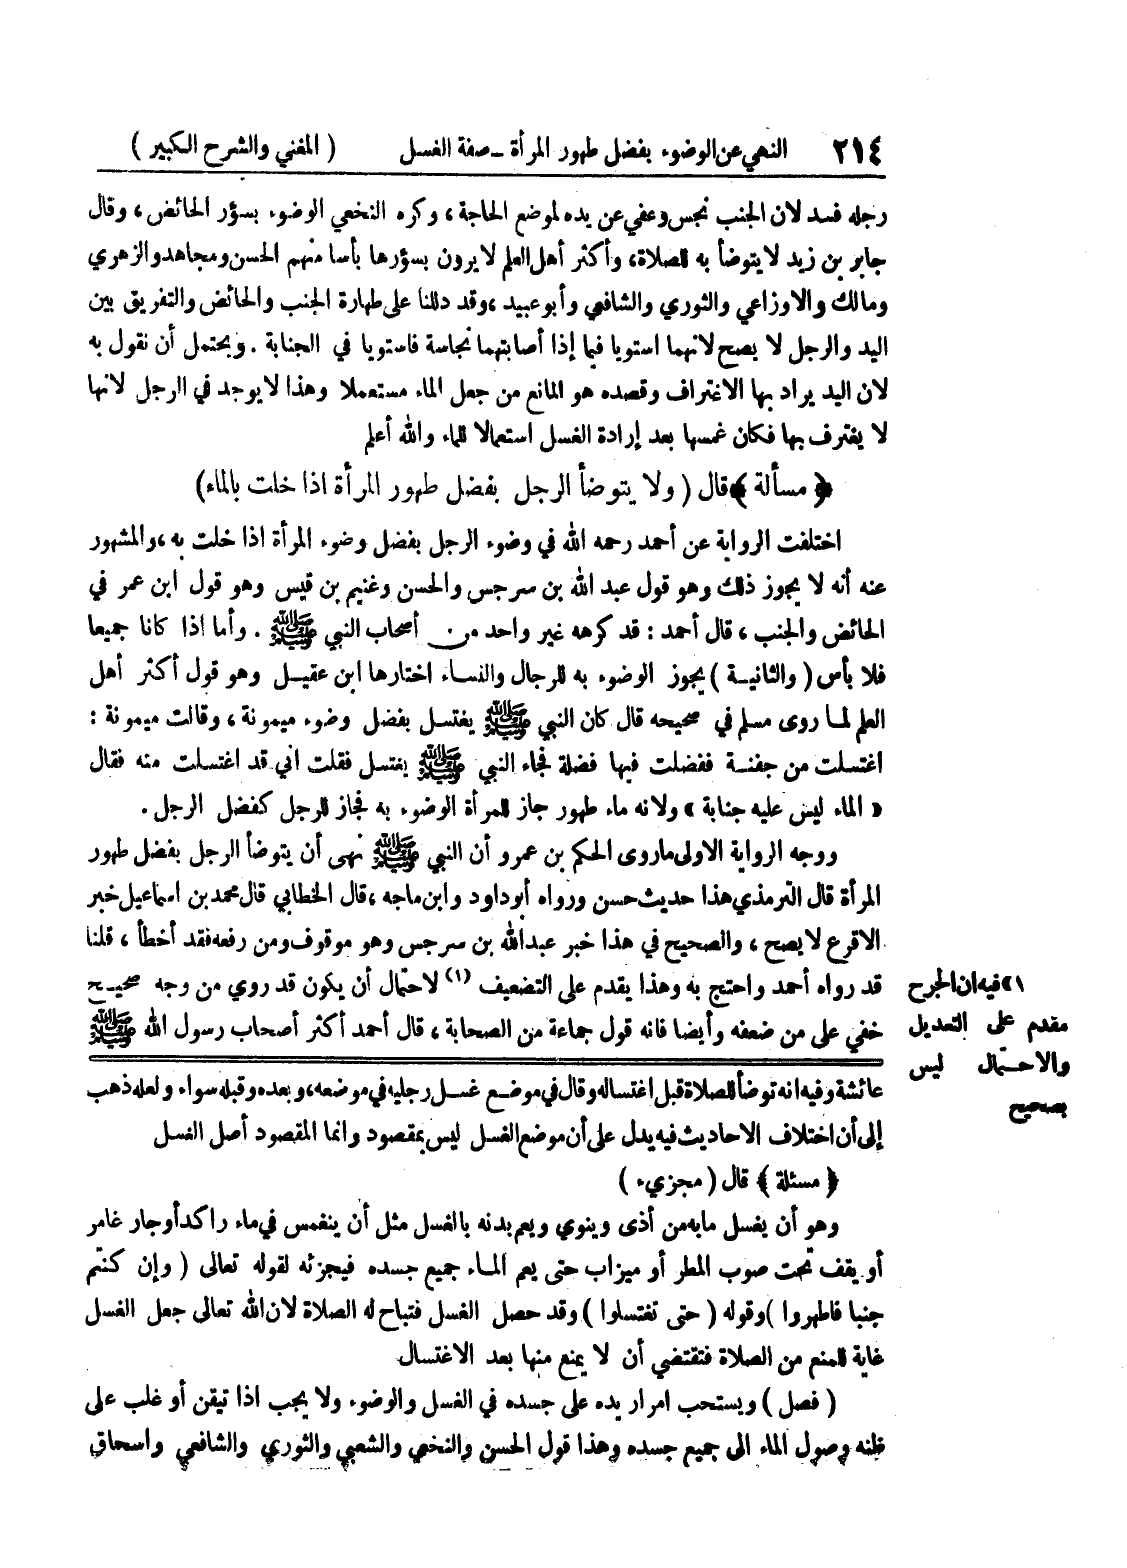 ٢١٤ النهي عن الوضوء بفضل طهور المرأة – صفة الغسل ( المغني والشرح الكبير )
رجله فسد لان الجنب نجس وعفي عن يده لموضع الحاجة ، وكره النخعي الوضوء بسؤر الحائض ، وقال
جابر بن زيد لا يتوضأ به للصلاة، وأكثر أهل العلم لا يرون بسؤرها بأسا منهم الحسن ومجاهد والزهري
ومالك والاوزاعي والثوري والشافعي وأبو عبيد ، وقد دللنا على طهارة الجنب والحائض والتفريق بين
اليد والرجل لا يصح لانهما استويا فيما إذا أصابتهما نجاسة فاستويا في الجنابة . ويحتمل أن نقول به
لان اليد يراد بها الاغتراف وقصده هو المانع من جعل الماء مستعملا وهذا لا يوجد في الرجل لانها
لا يغترف بها فكان غمسها بعد إرادة الغسل استعمالا للماء والله أعلم
﴿ مسألة ﴾ قال ( ولا يتوضأ الرجل بفضل طهور المرأة اذا خلت بالماء)
اختلفت الرواية عن أحمد رحمه الله في وضوء الرجل بفضل وضوء المرأة اذا خلت به ، والمشهور
عنه أنه لا يجوز ذلك وهو قول عبد الله بن سرجس والحسن وغنيم بن قيس وهو قول ابن عمر في
الحائض والجنب ، قال أحمد : قد كرهه غير واحد من أصحاب النبي ﷺ . وأما اذا كانا جميعا
فلا بأس ( والثانيـة ) يجوز الوضوء به للرجال والنساء اختارها ابن عقيـل وهو قول أكثر أهل
العلم لما روى مسلم في صحيحه قال كان النبي ﷺ يغتسل بفضل وضوء ميمونة ، وقالت ميمونة :
اغتسلت من جفنـة ففضلت فيها فضلة فجاء النبي ﷺ يغتسل فقلت اني قد اغتسلت منه فقال
« الماء ليس عليه جنابة » ولانه ماء طهور جاز للمرأة الوضوء به فجاز للرجل كفضل الرجل .
ووجه الرواية الاولى ماروى الحكم بن عمرو أن النبي ﷺ نهى أن يتوضأ الرجل بفضل طهور
المرأة قال الترمذي هذا حديث حسن ورواه أبو داود وابن ماجه ، قال الخطابي قال محمد بن اسماعيل خبر
الاقرع لا يصح ، والصحيح في هذا خبر عبد الله بن سرجس وهو موقوف ومن رفعه فقد أخطأ ، قلنا
قد رواه أحمد واحتج به وهذا يقدم على التضعيف (١) لاحتمال أن يكون قد روي من وجه صحيـح
خفي على من ضعفه وأيضا فانه قول جماعة من الصحابة ، قال أحمد أكثر أصحاب رسول الله ﷺ
١» فيه ان الجرح
مقدم على التعديل
والاحتمال ليس
بصحيح
عائشة وفيه انه توضأ للصلاة قبل اغتساله وقال في موضـع غسـل رجليه في موضعه، وبعده وقبله سواء ولعله ذهب
إلى أن اختلاف الاحاديث فيه يدل على أن موضع الغسل ليس بمقصود وانما المقصود أصل الغسل
﴿ مسئلة ﴾ قال ( مجزيء )
وهو أن يغسل مابه من أذى وينوي ويعم بدنه بالغسل مثل أن ينغمس في ماء راكد أو جار غامر
أو يقف تحت صوب المطر أو ميزاب حتى يعم المـاء جميع جسده فيجزئه لقوله تعالى ( وإن كنتم
جنبا فاطهروا ) وقوله ( حتى تغتسلوا ) وقد حصل الغسل فتباح له الصلاة لان الله تعالى جعل الغسل
غاية للمنع من الصلاة فتقتضي أن لا يمنع منها بعد الاغتسال
( فصل ) ويستحب امرار يده على جسده في الغسل والوضوء ولا يجب اذا تيقن أو غلب على
ظنه وصول الماء الى جميع جسده وهذا قول الحسن والنخعي والشعبي والثوري والشافعي واسحاق